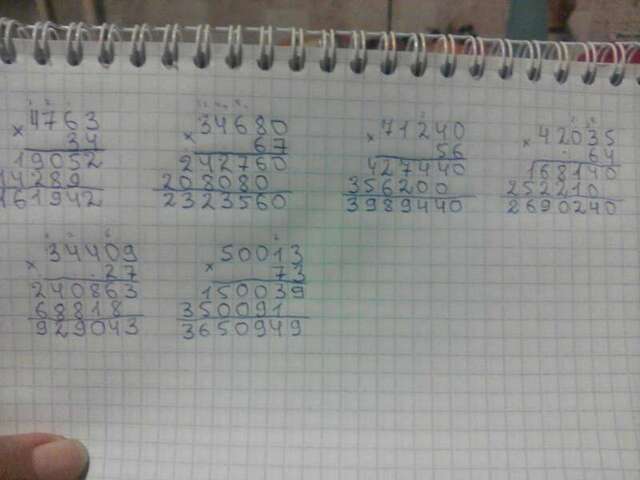 4763
× 34
19052
14289
161942
34680
× 67
242760
208080
2323560
71240
× 56
427440
356200
3989440
42035
× 64
168140
252210
2690240
34409
× 27
240863
68818
929043
50013
× 73
150039
350091
3650949